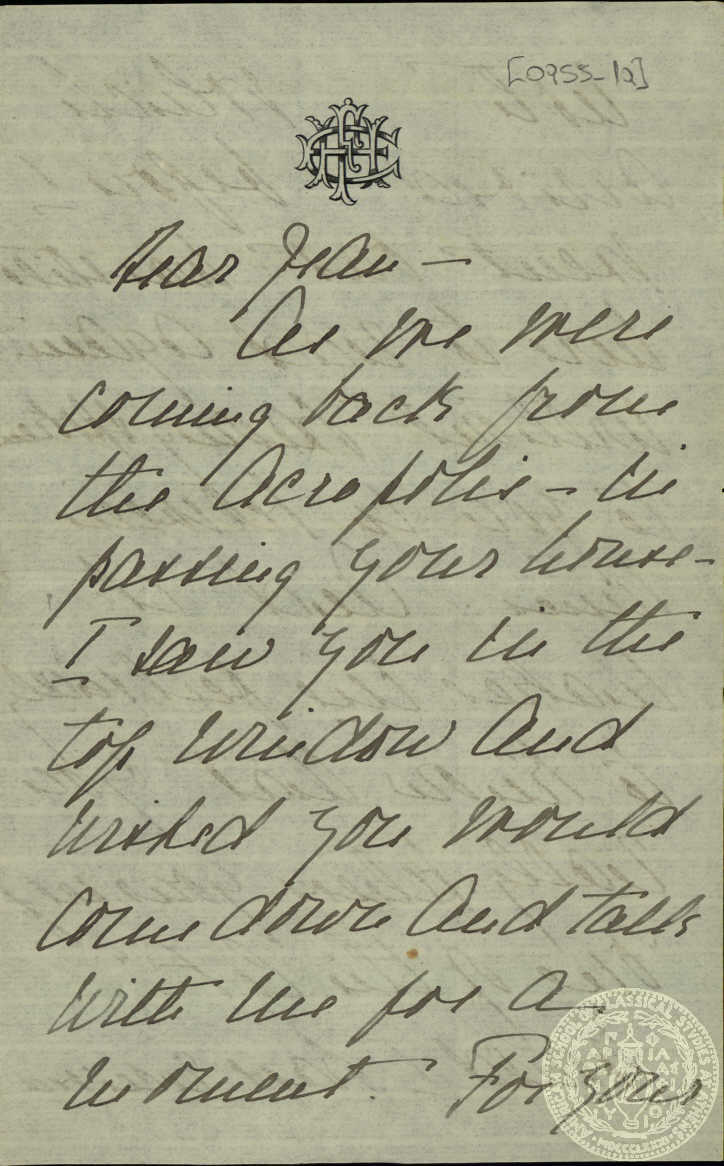 [0955-1a]
Dear Jean -
As we were
coming back from
the Acropolis - in
passing your house -
I saw you in the
top window and
wished you would
come down and talk
with me for a
moment. For your